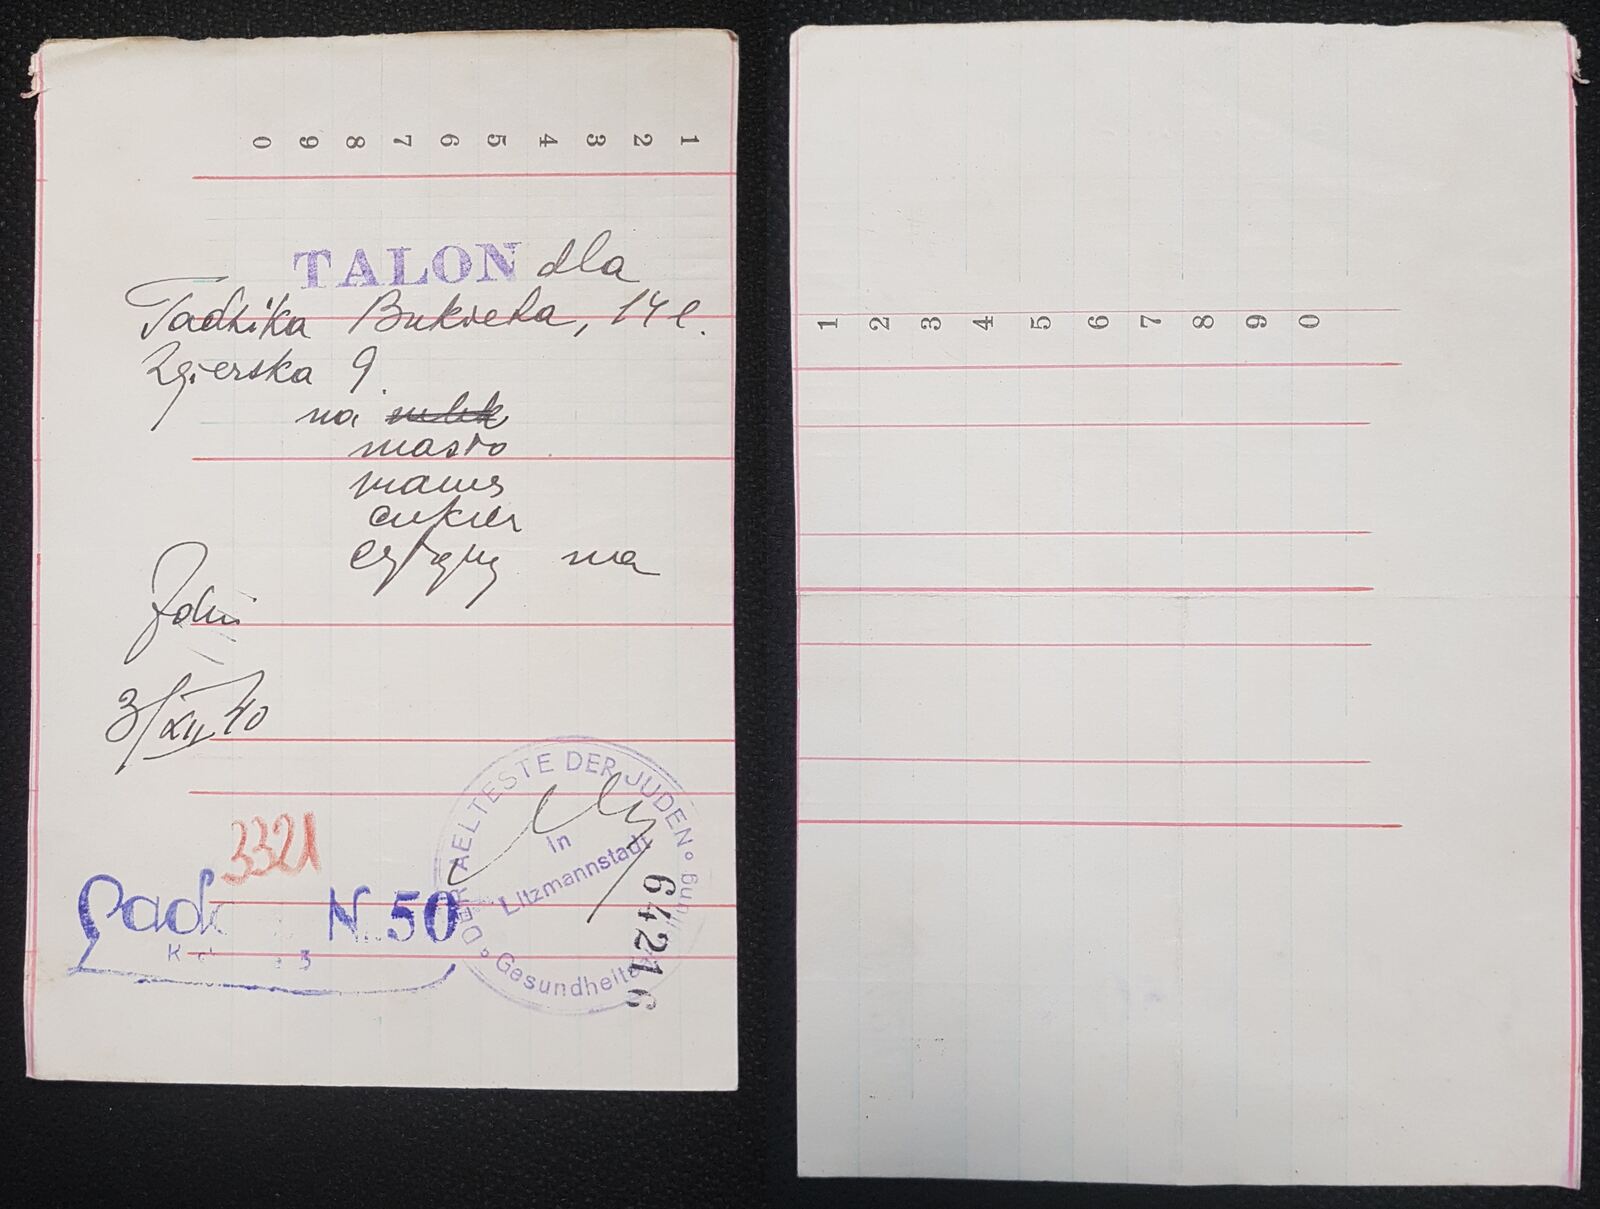 0 9 8 7 6 5 4 3 2 1
TALON dla
Tadzika Bukieta, 14 l.
Zgierska 9
na
masło
mannę
cukier
cytryny na
3/XII 40
3321
N. 50
DER AELTESTE DER JUDEN
in
Litzmannstadt
Gesundheitsabteilung
64216
1 2 3 4 5 6 7 8 9 0